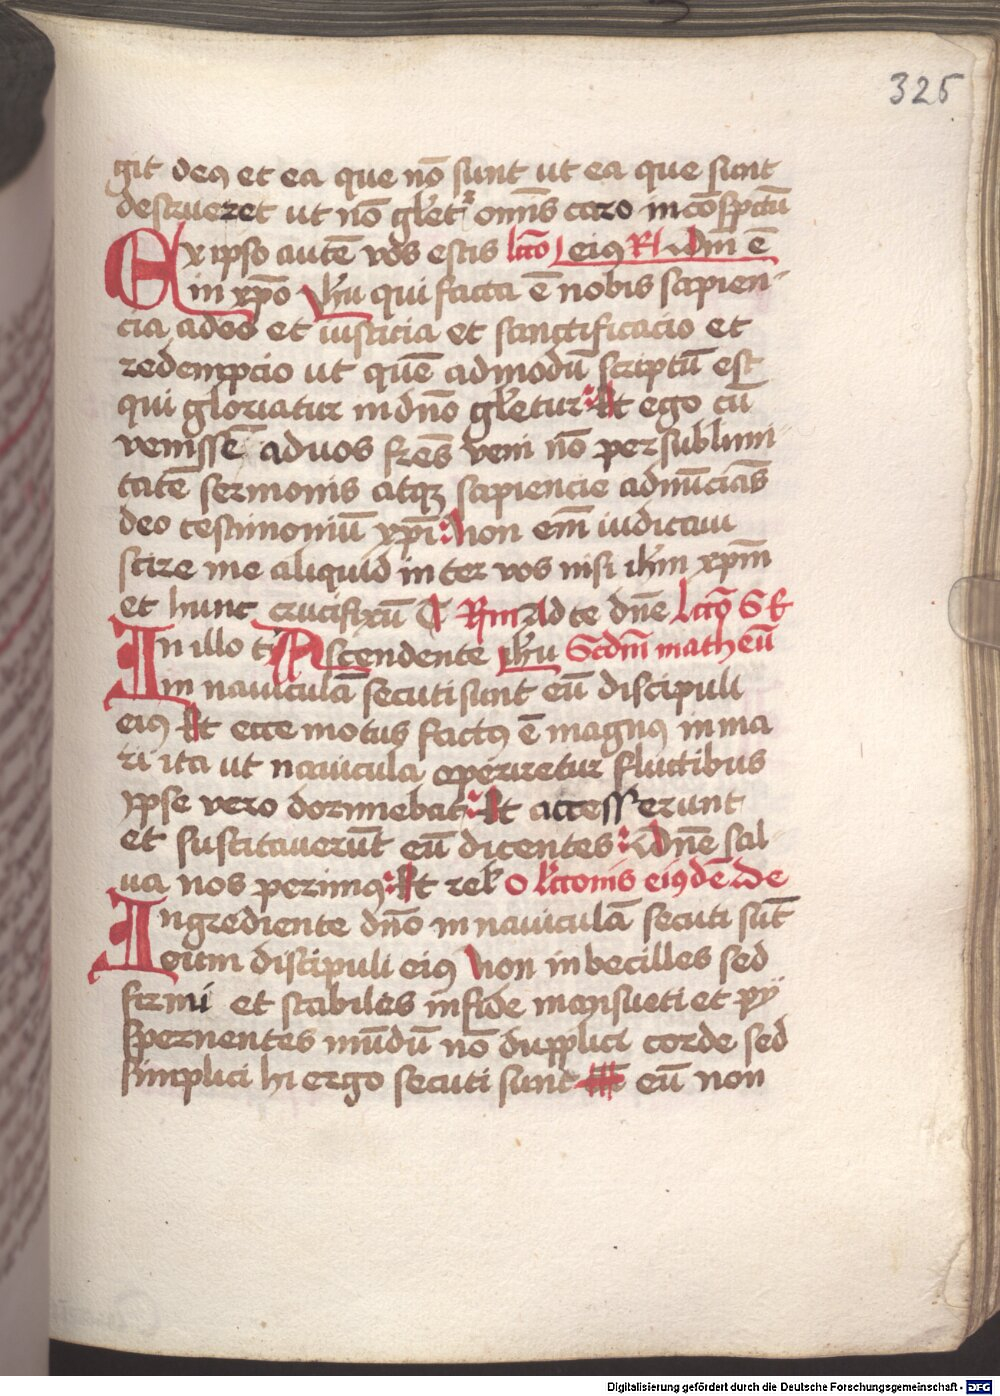 325
git deꝰ et ea que nō sunt ut ea que sunt
destrueret ut nō gl'et' om̄is caro in cōspctū
Ex ipso autē vos estis lcco I eiꝰ R Dm̄ ē
in xp̄o ih'u qui facta ē nobis sapien
cia adeo et iusticia et sanctificacio et
redempcio ut quē admodū scriptū est
qui gloriatur in dn̄o gl'etur Et ego cū
venissē aduos fr̄es veni nō per sublimi
tatē sermonis atqꝫ sapiencie adnūciās
deo testimoniū xp̄i Non em̄ iudicaui
scire me aliquid inter vos nisi ih'm xp̄m
et hunc crucifixū Ad te dn̄e
In illo t' Ascendente ih'u Scdm̄ matheū
in nauiculā secuti sunt eū discipuli
eiꝰ Et ecce motus factꝰ ē magnꝰ in ma
ri ita ut nauicula operiretur fluctibus
ipse vero dormiebat Et accesserunt
et suscitaverūt eū dicentes Dn̄e sal
va nos perimꝰ Et rel' O lcc̄onis eiꝰdē de
Ingrediente dn̄o in nauiculā secuti sūt
eum discipuli eiꝰ Non inbecilles sed
firmi et stabiles in fide mansueti et pij
spernentes mūdū nō dupplici corde sed
simplici hi ergo secuti sunt eū non
Digitalisierung gefördert durch die Deutsche Forschungsgemeinschaft - DFG